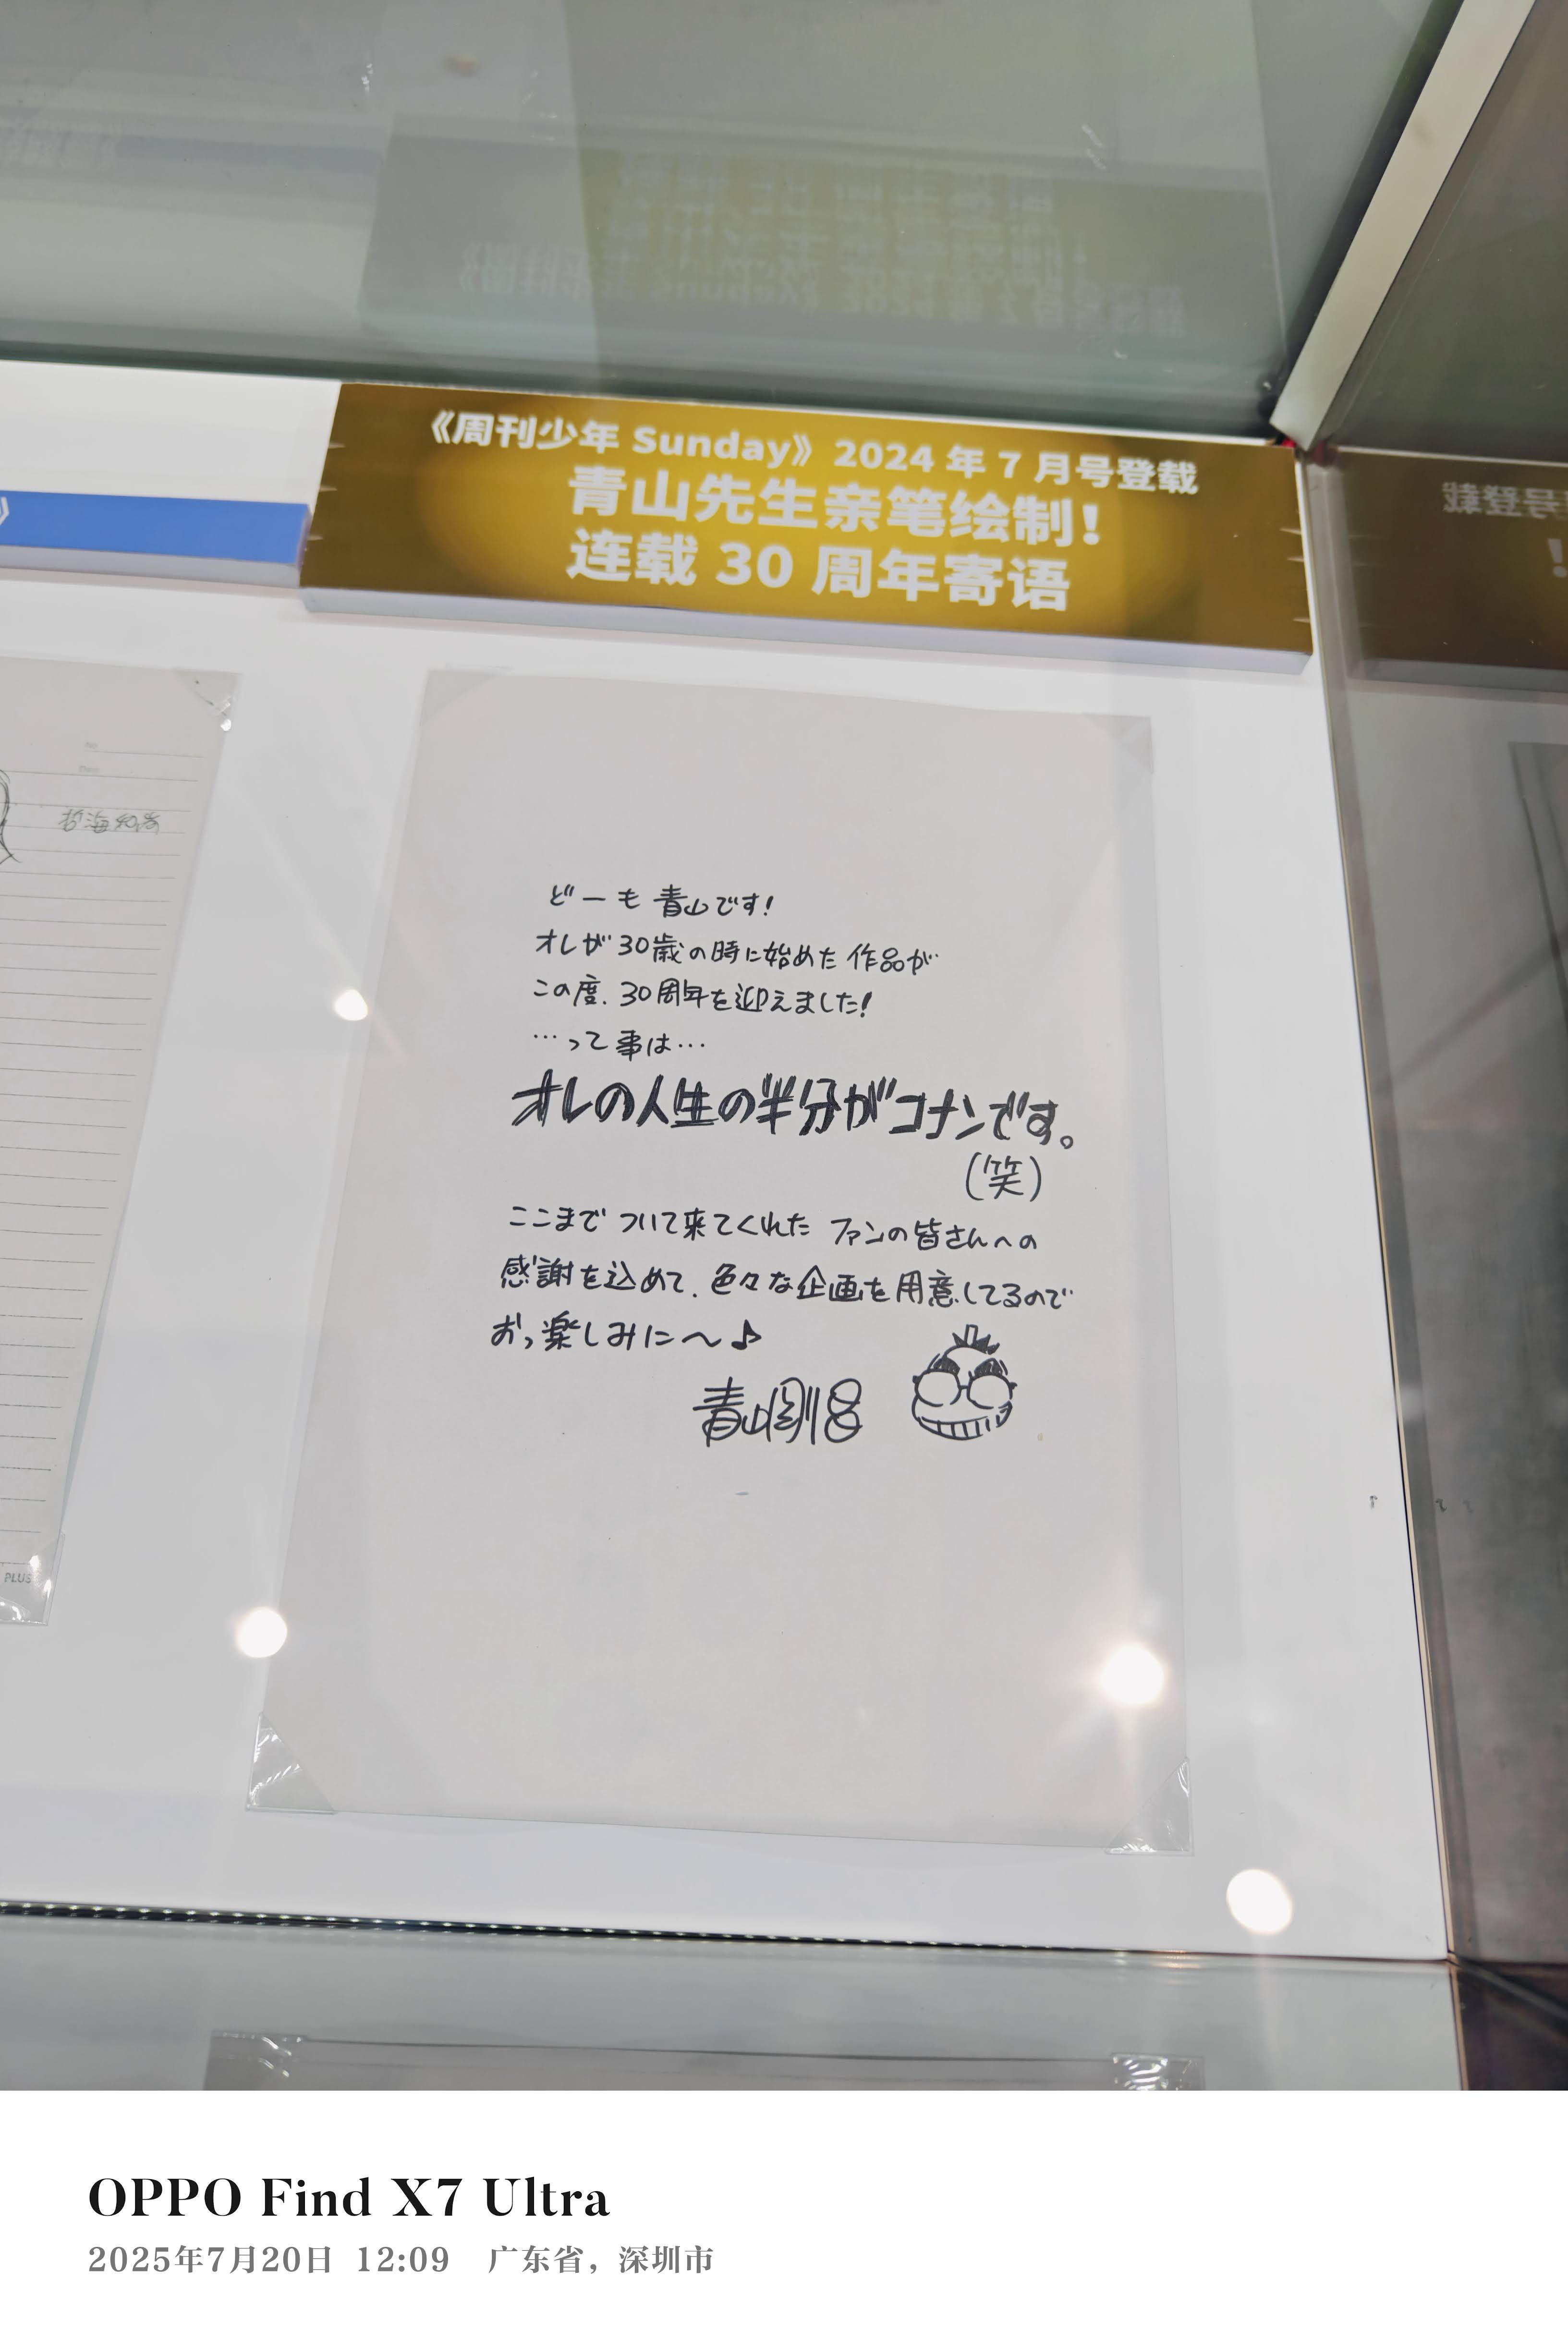 《周刊少年 Sunday》2024 年 7 月号登载
青山先生亲笔绘制！
连载 30 周年寄语
》
号登载
！
No
Date
PLUS
どーも 青山です！
オレが 30歳の時に始めた 作品が
この度、30周年を迎えました！
…って事は…
オレの人生の半分がコナンです。
（笑）
ここまで ついて来てくれた ファンの皆さんへの
感謝を込めて、色々な企画を用意してるので
おっ楽しみに～♪
青山剛昌
OPPO Find X7 Ultra
2025年7月20日 12:09 广东省，深圳市